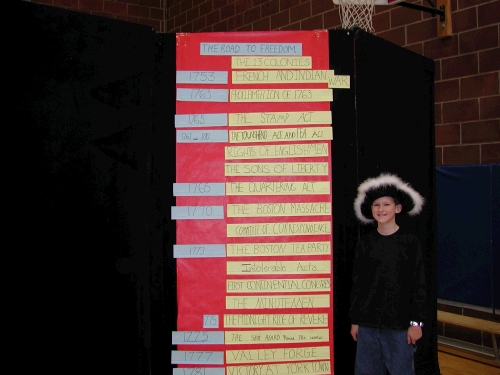 THE ROAD TO FREEDOM
THE 13 COLONIES
1753 FRENCH AND INDIAN WAR
1763 PROCLAMATION OF 1763
1765 THE STAMP ACT
THE TOWNSHEND ACT AND TEA ACT
RIGHTS OF ENGLISHMEN
THE SONS OF LIBERTY
1765 THE QUARTERING ACT
1770 THE BOSTON MASSACRE
COMMITTEE OF CORRESPONDENCE
1773 THE BOSTON TEA PARTY
Intolerable Acts
FIRST CONTINENTAL CONGRESS
THE MINUTEMEN
1775 THE MIDNIGHT RIDE OF REVERE
1775 THE SHOT HEARD
1777 VALLEY FORGE
1781 VICTORY AT YORKTOWN